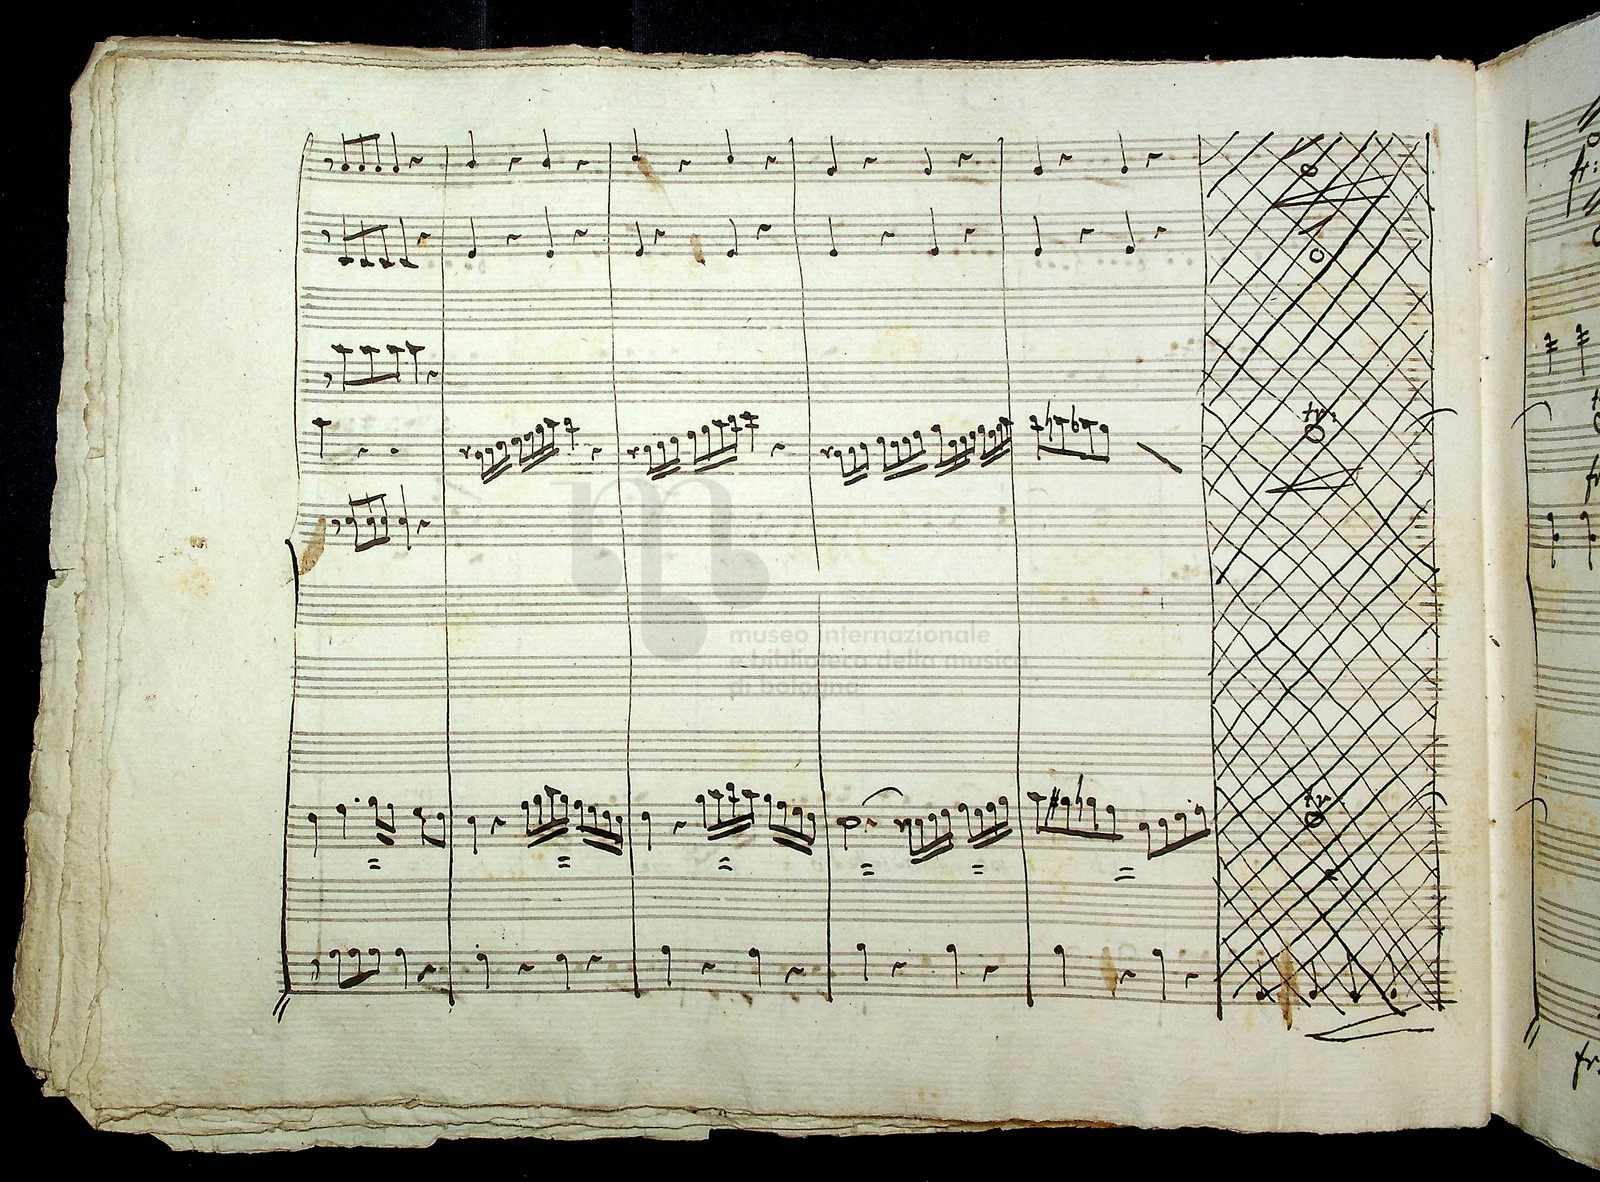 tr.
museo internazionale
e biblioteca della musica
di bologna
tr.